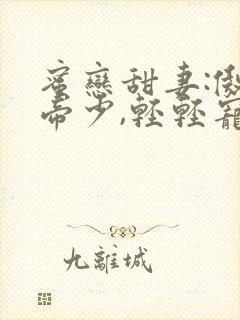 蜜戀甜妻:傲
帝少,輕輕寵
九離城